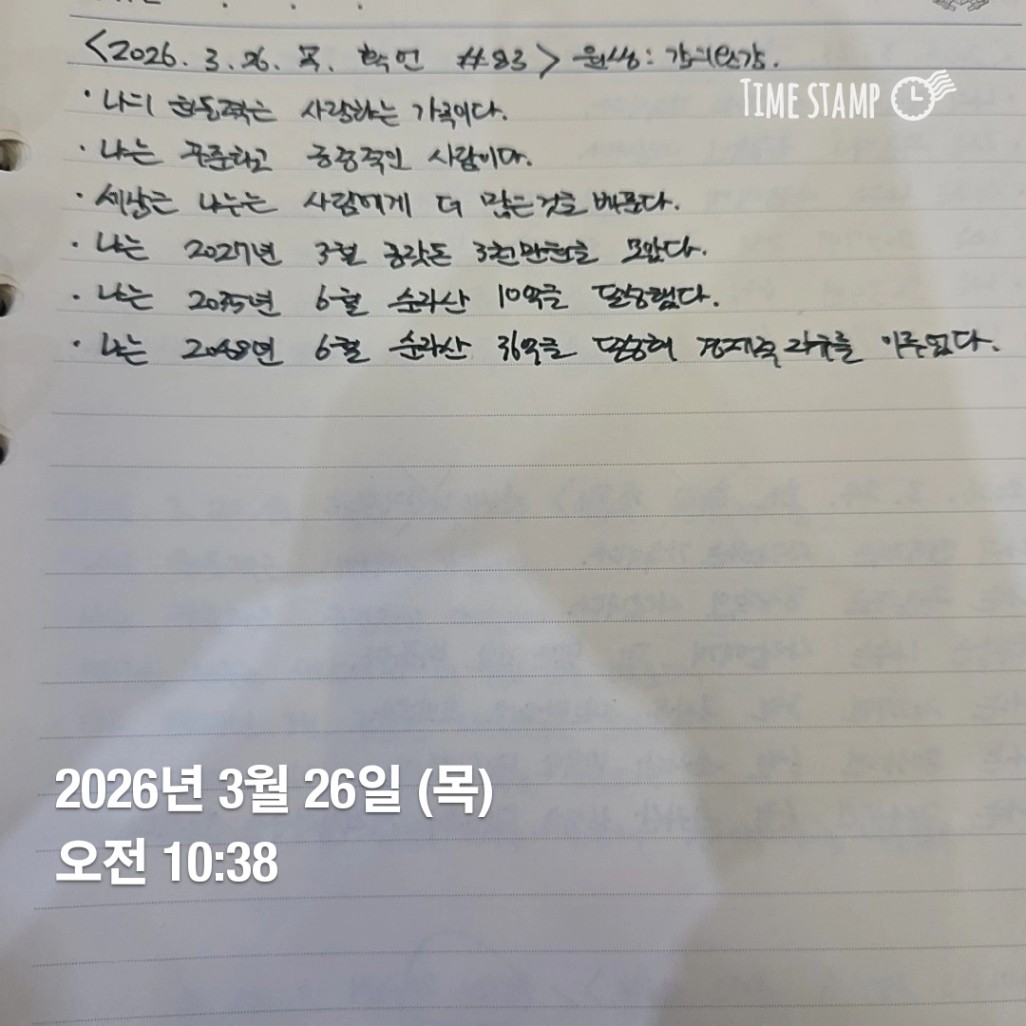 <2026. 3. 26. 목. 확언 #83> 원씽: 감사일기.
TIME STAMP
· 나의 원동력은 사랑하는 가족이다.
· 나는 꾸준하고 긍정적인 사람이다.
· 세상은 나누는 사람에게 더 많은것을 베푼다.
· 나는 2027년 3월 종잣돈 3천만원을 모았다.
· 나는 2035년 6월 순자산 10억을 달성했다.
· 나는 2048년 6월 순자산 36억을 달성해 경제적 자유를 이루었다.
2026년 3월 26일 (목)
오전 10:38